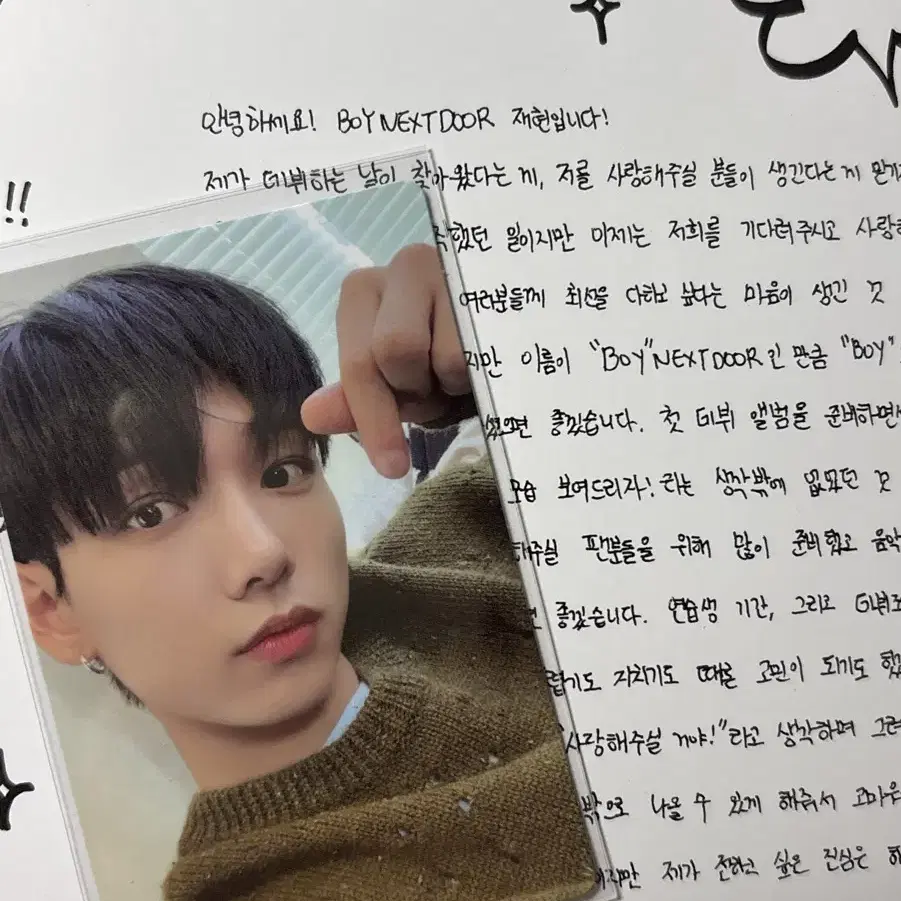 !!
안녕하세요! BOYNEXTDOOR 재현입니다!
제가 데뷔하는 날이 찾아왔다는 게, 저를 사랑해주실 분들이 생긴다는 게
했던 일이지만 이제는 저희를 기다려주시고
여러분들께 최선을 다하고 싶다는 마음이 생긴 것
지만 이름이 "BOY"NEXTDOOR인 만큼 "BOY"
좋겠습니다. 첫 데뷔 앨범을 준비하면서
모습 보여드리자! 라는 생각밖에 없었던 것
해주실 팬분들을 위해 많이 준비했고 음악
좋겠습니다. 연습생 기간, 그리고
렵기도 지치기도 때론 고민이 되기도
사랑해주실 거야!"라고 생각하며
밖으로 나올 수 있게 해줘서
이지만 제가 전하고 싶은 진심은